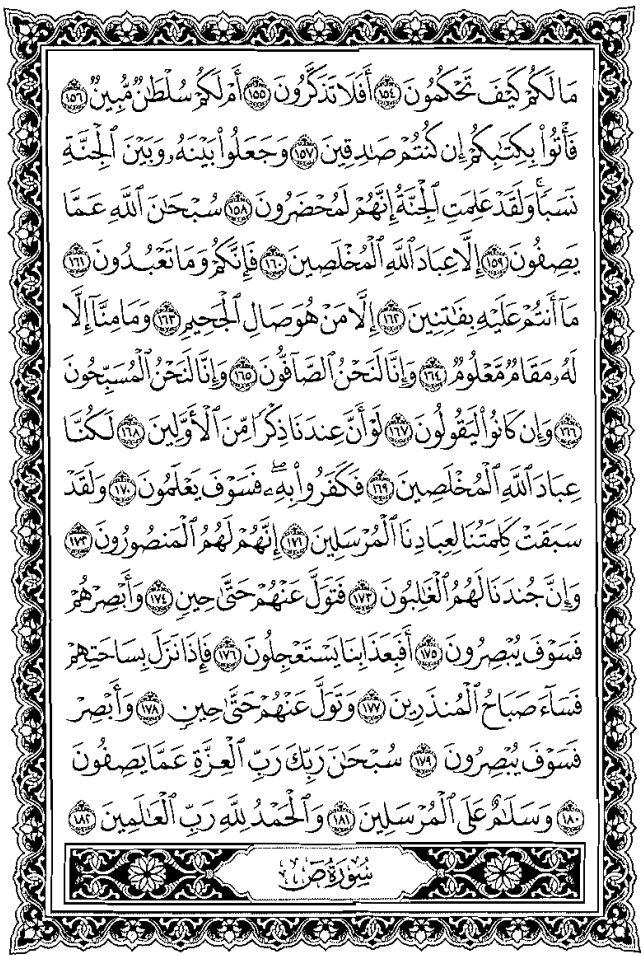 مَا لَكُمْ كَيْفَ تَحْكُمُونَ ۝١٥٤ أَفَلَا تَذَكَّرُونَ ۝١٥٥ أَمْ لَكُمْ سُلْطَانٌ مُّبِينٌ ۝١٥٦
فَأْتُوا بِكِتَابِكُمْ إِن كُنتُمْ صَادِقِينَ ۝١٥٧ وَجَعَلُوا بَيْنَهُ وَبَيْنَ الْجِنَّةِ
نَسَبًا وَلَقَدْ عَلِمَتِ الْجِنَّةُ إِنَّهُمْ لَمُحْضَرُونَ ۝١٥٨ سُبْحَانَ اللَّهِ عَمَّا
يَصِفُونَ ۝١٥٩ إِلَّا عِبَادَ اللَّهِ الْمُخْلَصِينَ ۝١٦٠ فَإِنَّكُمْ وَمَا تَعْبُدُونَ ۝١٦١
مَا أَنتُمْ عَلَيْهِ بِفَاتِنِينَ ۝١٦٢ إِلَّا مَنْ هُوَ صَالِ الْجَحِيمِ ۝١٦٣ وَمَا مِنَّا إِلَّا
لَهُ مَقَامٌ مَّعْلُومٌ ۝١٦٤ وَإِنَّا لَنَحْنُ الصَّافُّونَ ۝١٦٥ وَإِنَّا لَنَحْنُ الْمُسَبِّحُونَ
۝١٦٦ وَإِن كَانُوا لَيَقُولُونَ ۝١٦٧ لَوْ أَنَّ عِندَنَا ذِكْرًا مِّنَ الْأَوَّلِينَ ۝١٦٨ لَكُنَّا
عِبَادَ اللَّهِ الْمُخْلَصِينَ ۝١٦٩ فَكَفَرُوا بِهِ ۖ فَسَوْفَ يَعْلَمُونَ ۝١٧٠ وَلَقَدْ
سَبَقَتْ كَلِمَتُنَا لِعِبَادِنَا الْمُرْسَلِينَ ۝١٧١ إِنَّهُمْ لَهُمُ الْمَنصُورُونَ ۝١٧٢
وَإِنَّ جُندَنَا لَهُمُ الْغَالِبُونَ ۝١٧٣ فَتَوَلَّ عَنْهُمْ حَتَّىٰ حِينٍ ۝١٧٤ وَأَبْصِرْهُمْ
فَسَوْفَ يُبْصِرُونَ ۝١٧٥ أَفَبِعَذَابِنَا يَسْتَعْجِلُونَ ۝١٧٦ فَإِذَا نَزَلَ بِسَاحَتِهِمْ
فَسَاءَ صَبَاحُ الْمُنذَرِينَ ۝١٧٧ وَتَوَلَّ عَنْهُمْ حَتَّىٰ حِينٍ ۝١٧٨ وَأَبْصِرْ
فَسَوْفَ يُبْصِرُونَ ۝١٧٩ سُبْحَانَ رَبِّكَ رَبِّ الْعِزَّةِ عَمَّا يَصِفُونَ
۝١٨٠ وَسَلَامٌ عَلَى الْمُرْسَلِينَ ۝١٨١ وَالْحَمْدُ لِلَّهِ رَبِّ الْعَالَمِينَ ۝١٨٢
سُورَةُ ص